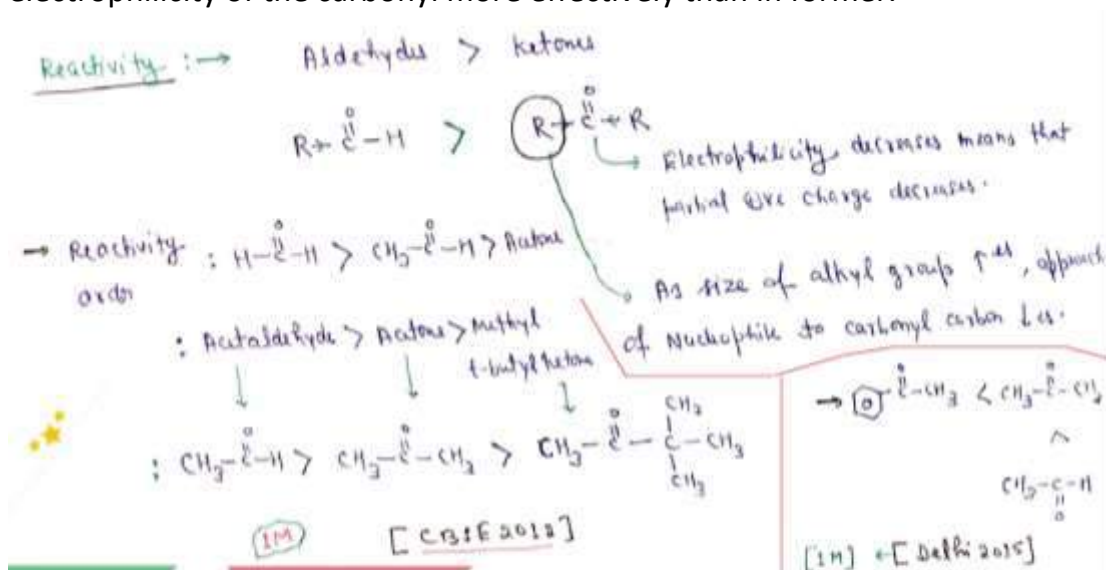 electrophilicity of the carbonyl more effectively than in former.
Reactivity :→ Aldehydes > ketones
R→C(=O)–H > R→C(=O)←R
→ Electrophilicity decreases means that
partial +ive charge decreases.
→ Reactivity order : H–C(=O)–H > CH3–C(=O)–H > Acetone
→ As size of alkyl group ↑es, approach
of Nucleophile to carbonyl carbon ↓es.
: Acetaldehyde > Acetone > Methyl
t-butyl ketone
: CH3–C(=O)–H > CH3–C(=O)–CH3 > CH3–C(=O)–C(CH3)(CH3)–CH3
(1M) [CBSE 2012]
→ C(=O)–CH3 < CH3–C(=O)–CH3
<
CH3–C(=O)–H
[1M] ←[Delhi 2015]